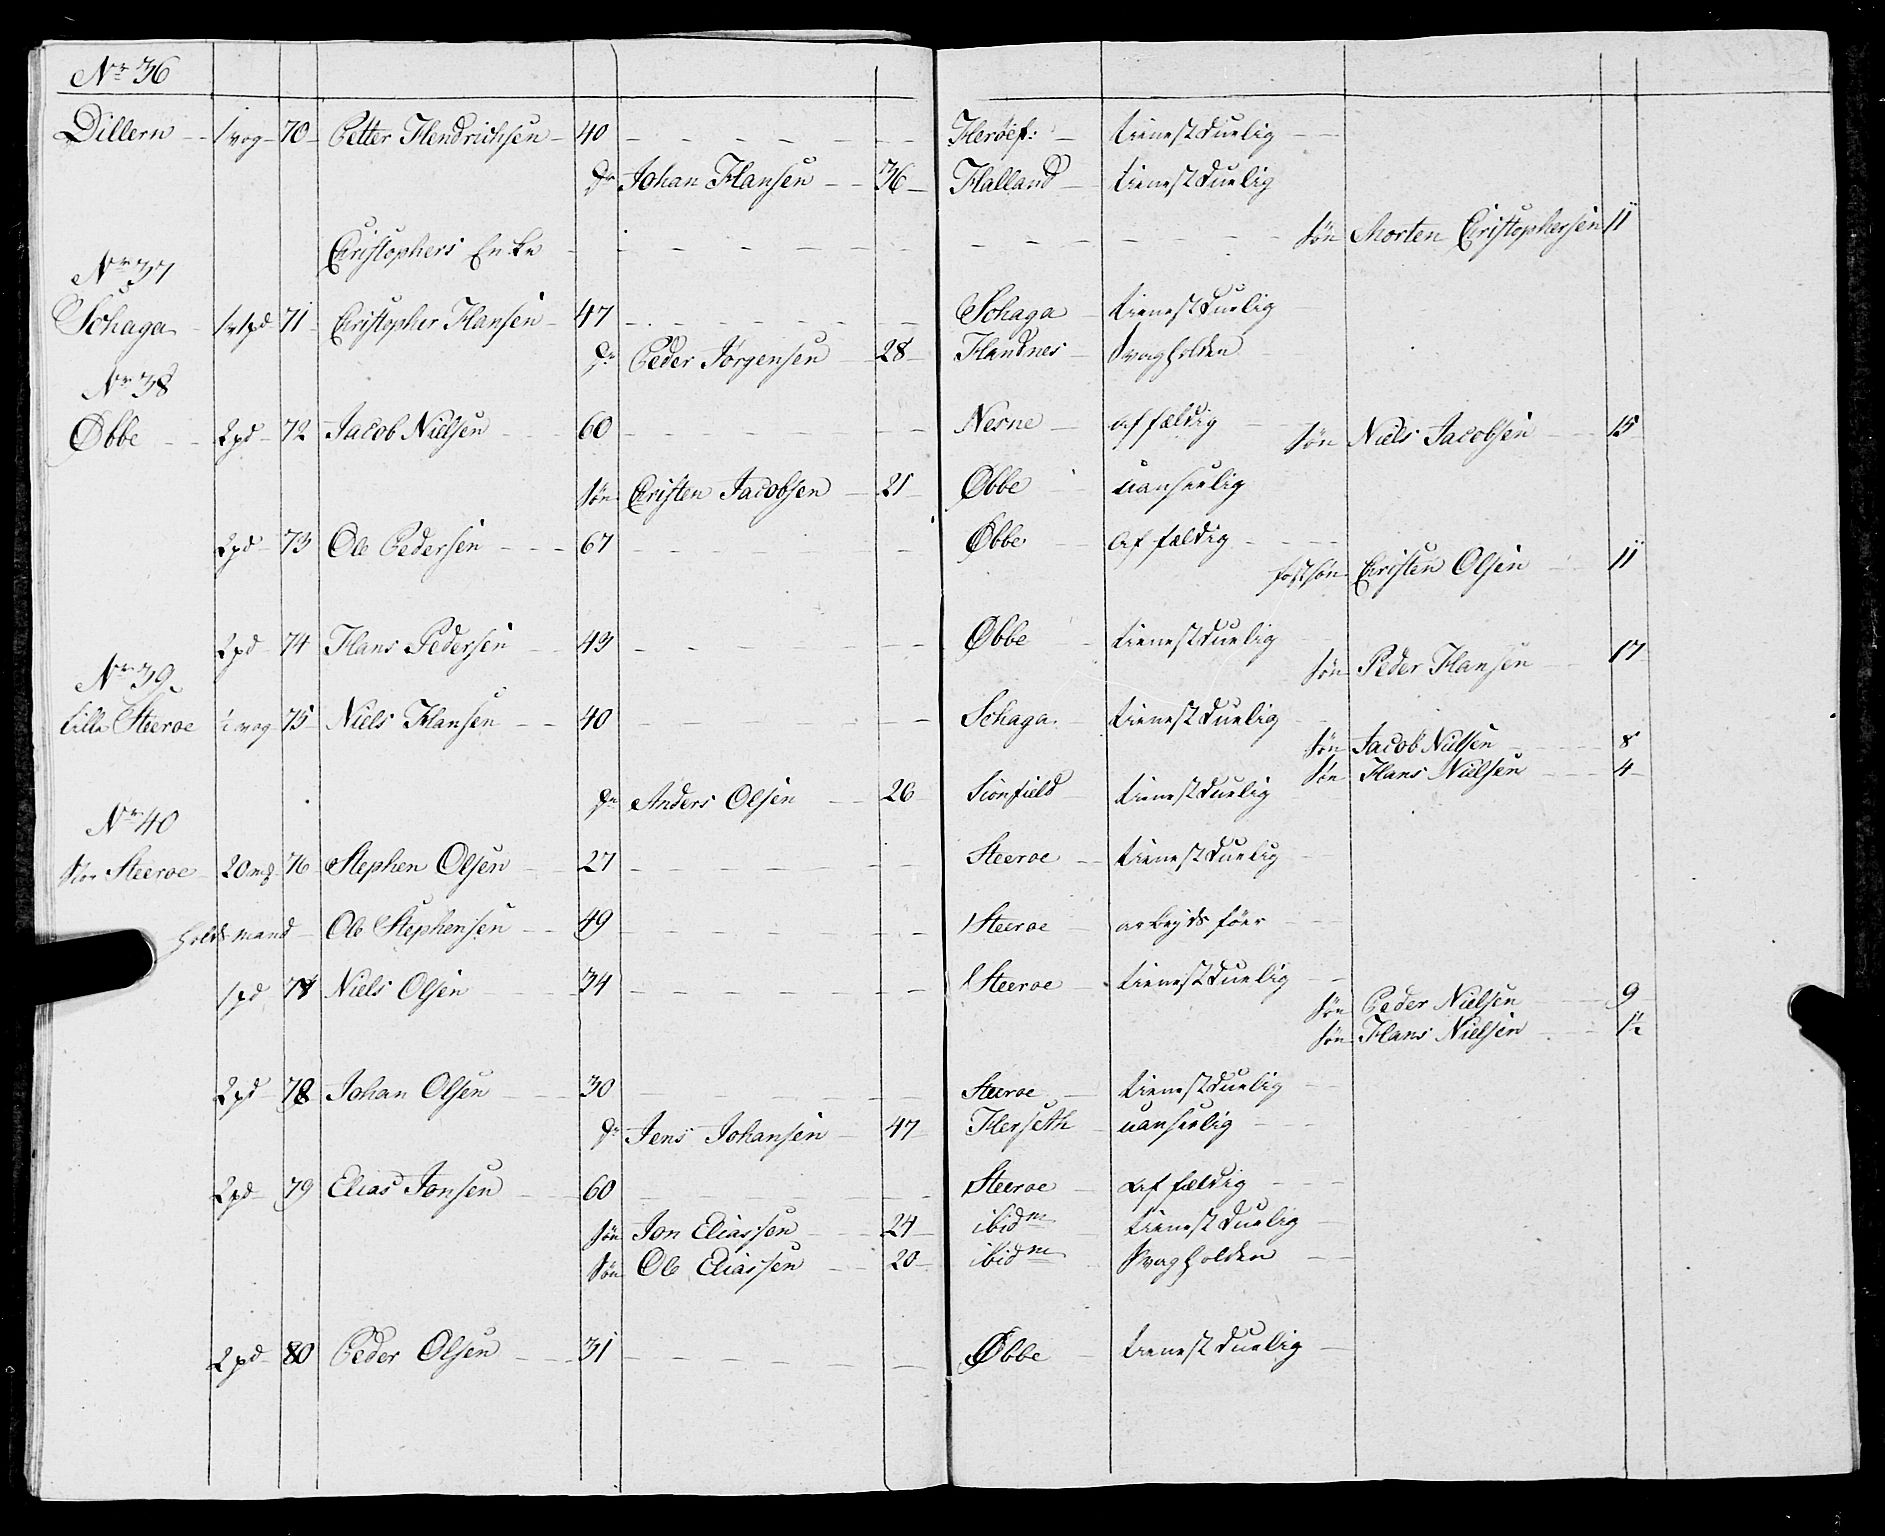 Nr 36
Dillern 1 vog 70 Petter Hendrichsen 40 Herøef: tienestduelig
Dr Johan Hansen 36 Halland tienestduelig
Christophers Enke Søn Morten Christophersen 11
Nr 37
Schaga 71 Christopher Hansen 47 Schaga tienestduelig
Dr Peder Jørgensen 28 Handnes Svagholden
Nr 38
Øbbe 2 pd 72 Jacob Nielsen 60 Nesne affældig Søn Niels Jacobsen 15
Søn Christen Jacobsen 21 Øbbe uanseelig
2 pd 73 Ole Pedersen 67 Øbbe affældig
fostsøn Christen Olsen 11
2 pd 74 Hans Pedersen 43 Øbbe tienestduelig
Søn Peder Hansen 17
Nr 39
Lille Steeroe 1 vog 75 Niels Hansen 40 Schaga tienestduelig
Søn Jacob Nielsen 8
Søn Hans Nielsen 4
Dr Anders Olsen 26 Sionfield tienestduelig
Nr 40
Stor Steeroe 20 mk 76 Stephen Olsen 27 Steeroe tienestduelig
Holdsmand Ole Stephensen 49 Steeroe arbeydsføer
1 pd 77 Niels Olsen 34 Steeroe tienestduelig
Søn Peder Nielsen 9
Søn Hans Nielsen 1½
2 pd 78 Johan Olsen 30 Steeroe tienestduelig
Dr Jens Johansen 47 Herseth uanseelig
2 pd 79 Elias Jonsen 60 Steeroe affældig
Søn Jon Eliassen 24 ibidm tienestduelig
Søn Ole Eliassen 20 ibidm Svagholden
2 pd 80 Peder Olsen 31 Øbbe tienestduelig